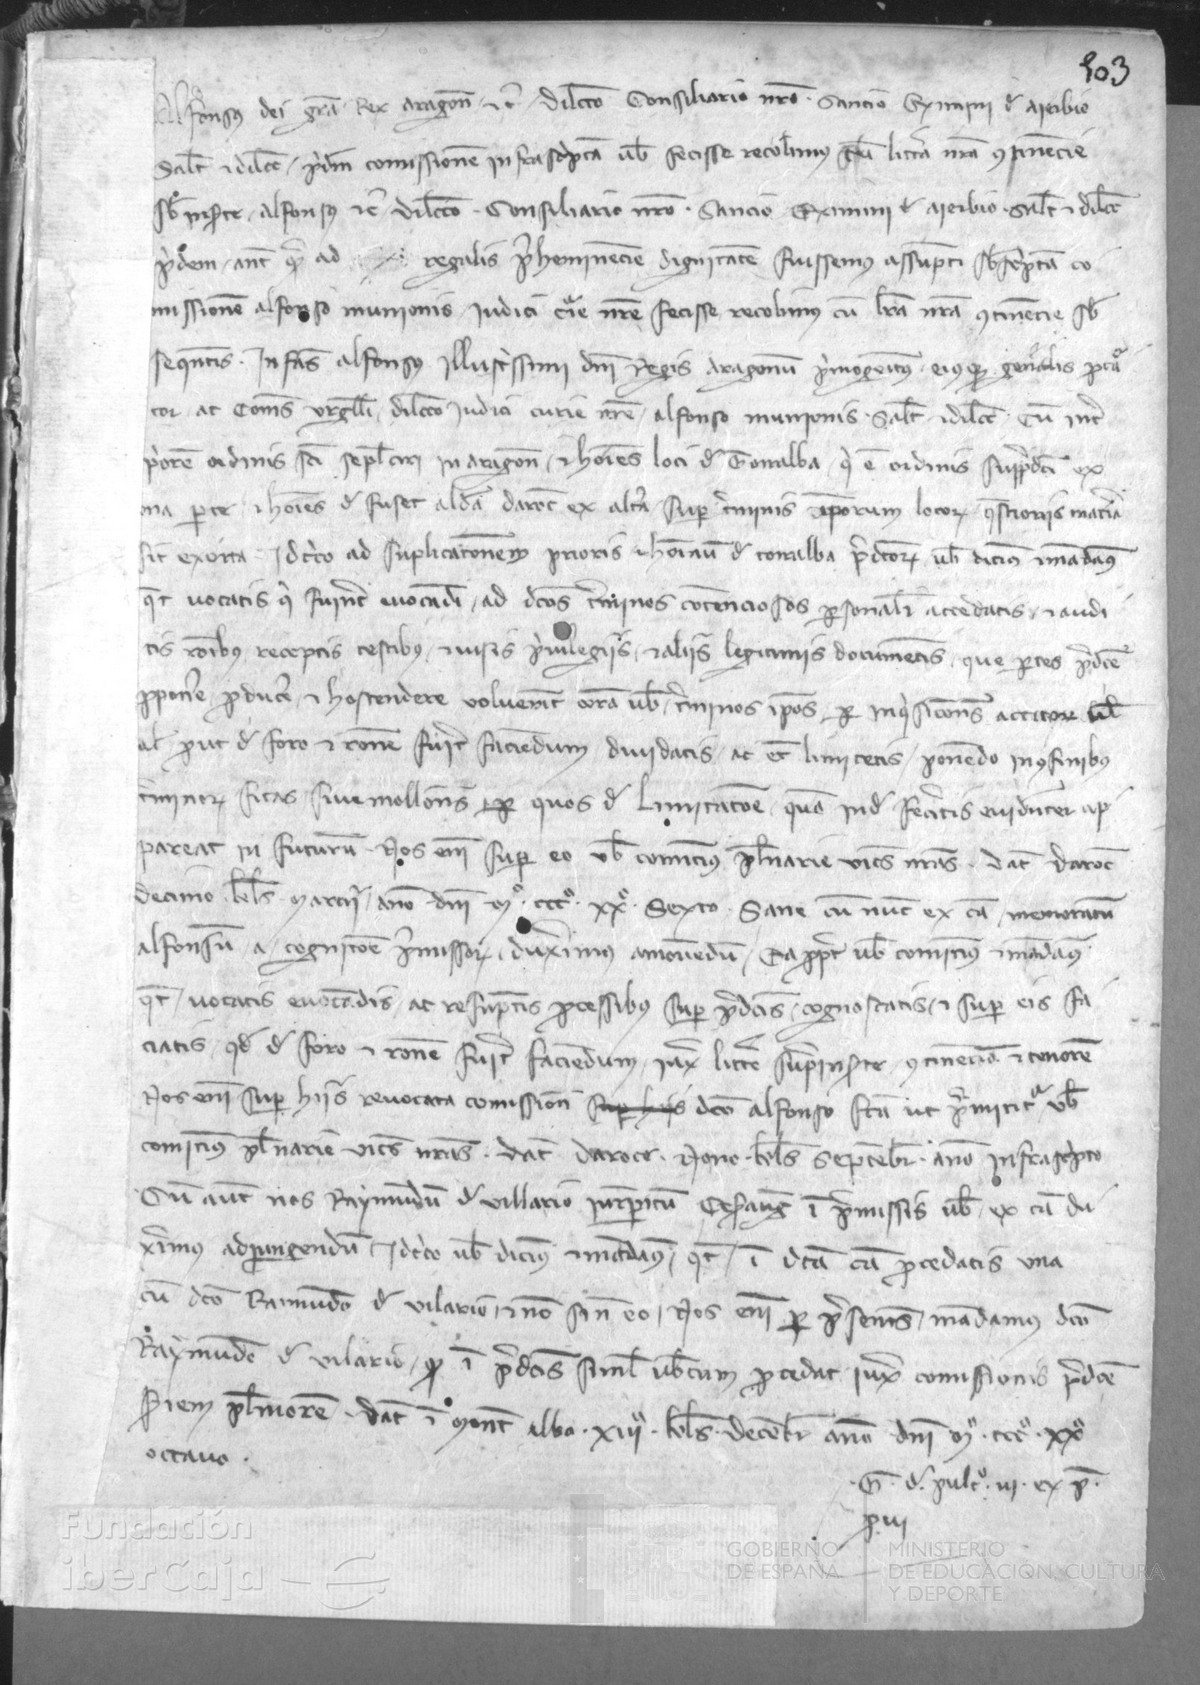 103
Alfonsus dei gra Rex Aragon etc dilecto Consiliario nro Sancio Eximini d Aierbio
Salt et dilecc pridem comissionem infrascripta ub fecisse recolimus cu littera nra continencie
sb inserte Alfonsus etc dilecto Consiliario nro Sancio Eximini d Aierbio Salt et dilecc
pridem ant q ad regalis preheminencie dignitatem fuissemus assumpti sbscripta co
missionem Alfonso munionis Iudici curie nre fecisse recolimus cu lra nra continencie sb
sequentis Infans Alfonsus Illustrissimi dni Regis Aragonum primogenitus eiusq generalis procura
tor ac Comes Urgelli dilecto Iudici curie nre Alfonso munionis Salt et dilecc Cum inter
priorem ordinis sci sepulcri in Aragon et hoies loci d Torralba q e ordinis supradicti ex
una parte et hoies d fuset aldea Daroc ex altera super terminis ipsorum locorum questionis materia
sit exorta Idcirco ad suplicationem prioris et hominum d torralba predictorum ub dicimus et mandamus
qt vocatis q fuerint evocandi ad dictos terminos contenciosos personaliter accedatis et audi
tis ronibus receptis testibus et visis privilegiis et aliis legitimis documentis que partes predicte
proponere producere et hostendere voluerint coram ub terminos ipsos per inquisicionem
al prout d foro et rone fuerit faciendum dividatis ac et limitetis ponendo in confinibus
terminorum fitas sive mollones per quos d limitatoe qua ind feceritis evidenter ap
pareat in futurum Nos eni super eo ub comitimus plenarie vices nras Dat Daroc
decimo kls marcii ano dni mo ccco xxo Sexto Sane cum nunc ex ca memoratum
Alfonsum a cognitoe premissorum duxerimus amovendum Ea ppt ub comitimus et mandamus
qt vocatis evocandis ac resumptis processibus super predictis cognoscatis et super eis fa
ciatis qd d foro et rone fuerit faciendum iuxta littere suprainserte continenciam et tenorem
Nos eni super hiis revocata comissioni super hiis dco Alfonso fca ut premititur ub
comitimus plenarie vices nras Dat Daroce Nono kls Septembr ano infrascripto
Cum autem nos Raymundum d villario iurisperitum Cesaraug i premissis ub ex ca du
xerimus adiungendum Idcirco ub dicimus et mandamus qt i dcta ca procedatis una
cu dco Raimundo d vilario et no sin eo Nos eni per presentes mandamus dco
Raymundo d vilario q i predictis simul ubcum procedat iuxta comissionis predicte
seriem pleniorem Dat i Mont albo xiii kls decembr ano dni mo ccco xxo
octavo
G d pulcro vi ex p
p vi
Fundación
iberCaja
GOBIERNO
DE ESPAÑA
MINISTERIO
DE EDUCACIÓN, CULTURA
Y DEPORTE